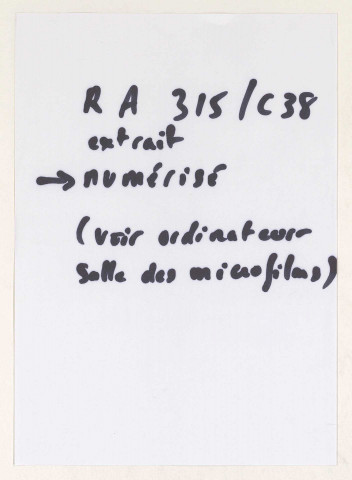 RA 315/C38
extrait
→ numérisé
(voir ordinateur
salle des microfilms)